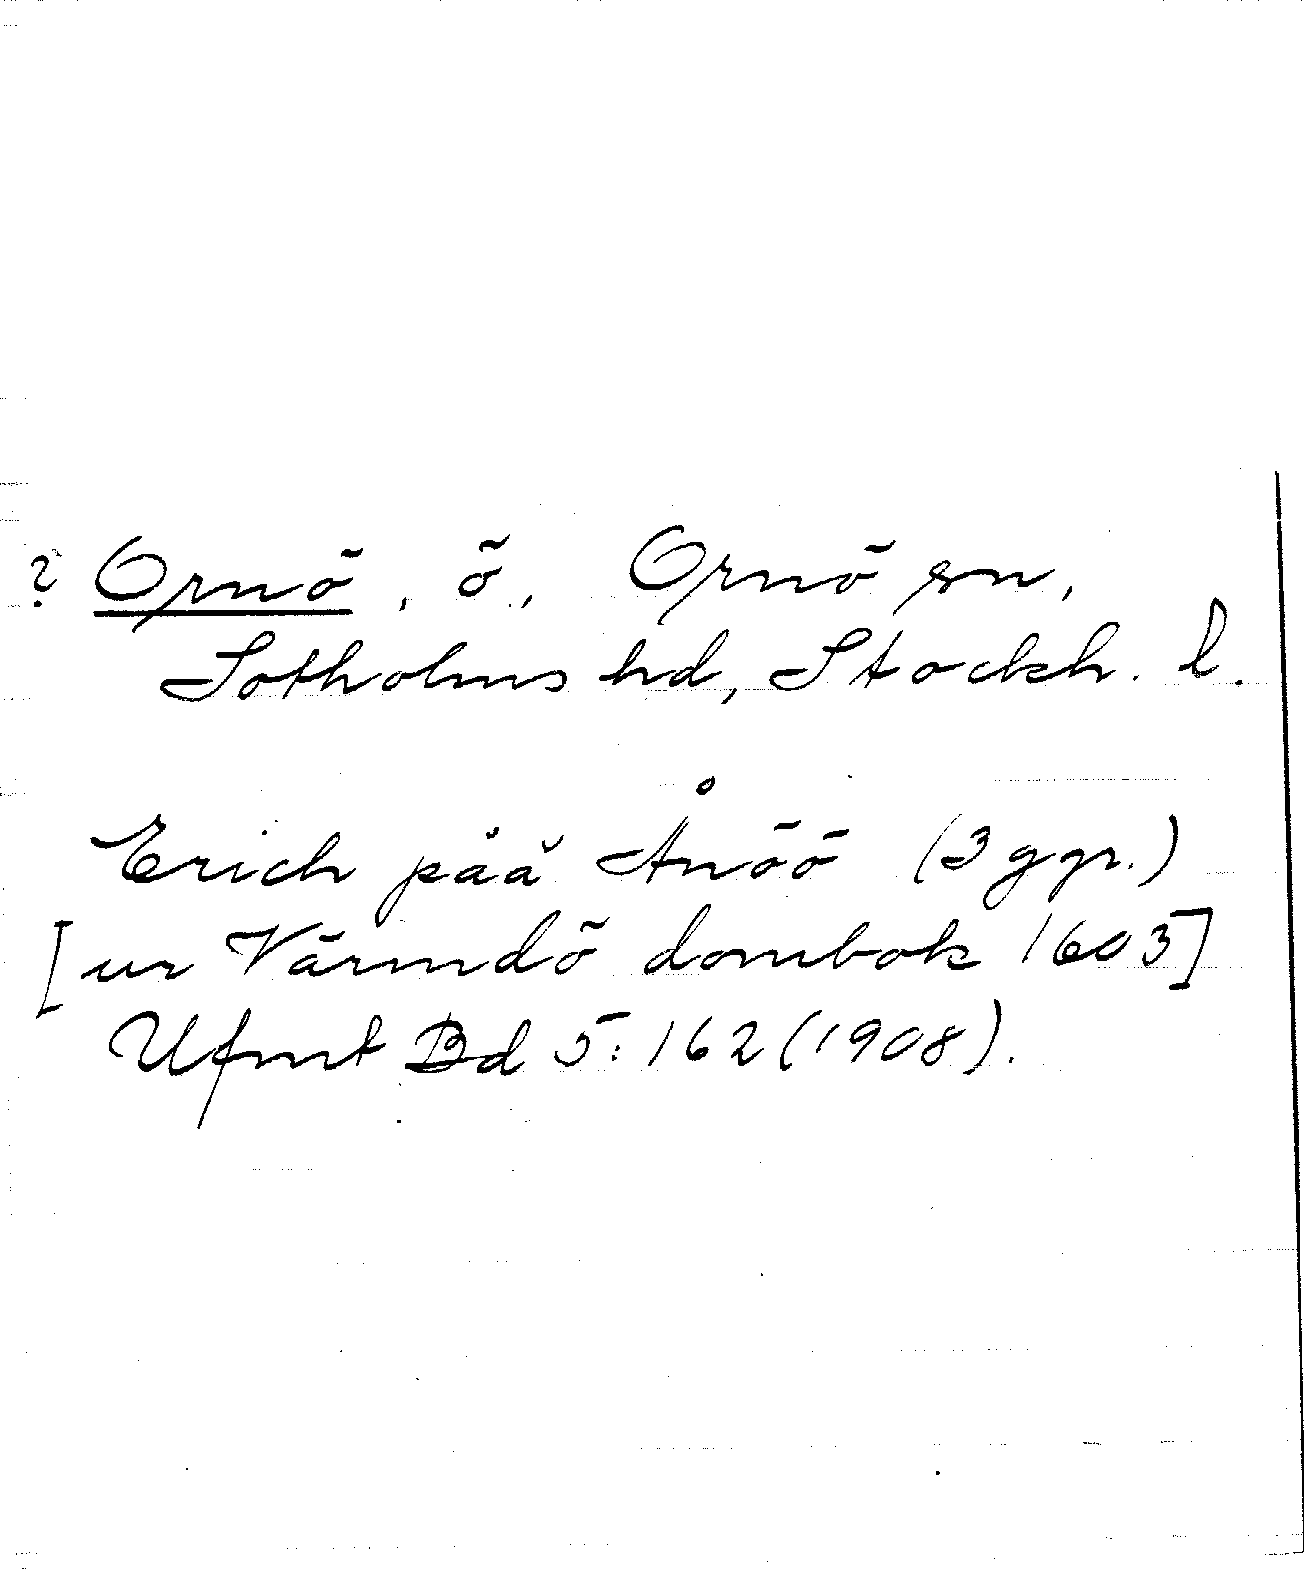 ? Ornö, ö, Ornö sn,
Sotholms hd, Stockh. l.
Erich påå Ånöö (3 ggr.)
[ur Värmdö dombok 1603]
Ufmt Bd 5:162 (1908).